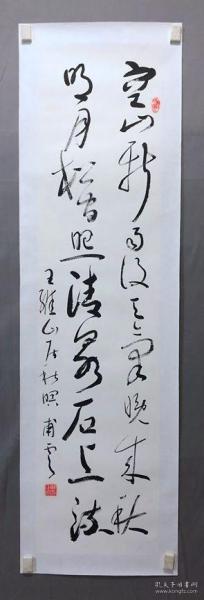 空山新雨后天气晚来秋
明月松间照清泉石上流
王维山居秋暝 甫云
孔夫子旧书网